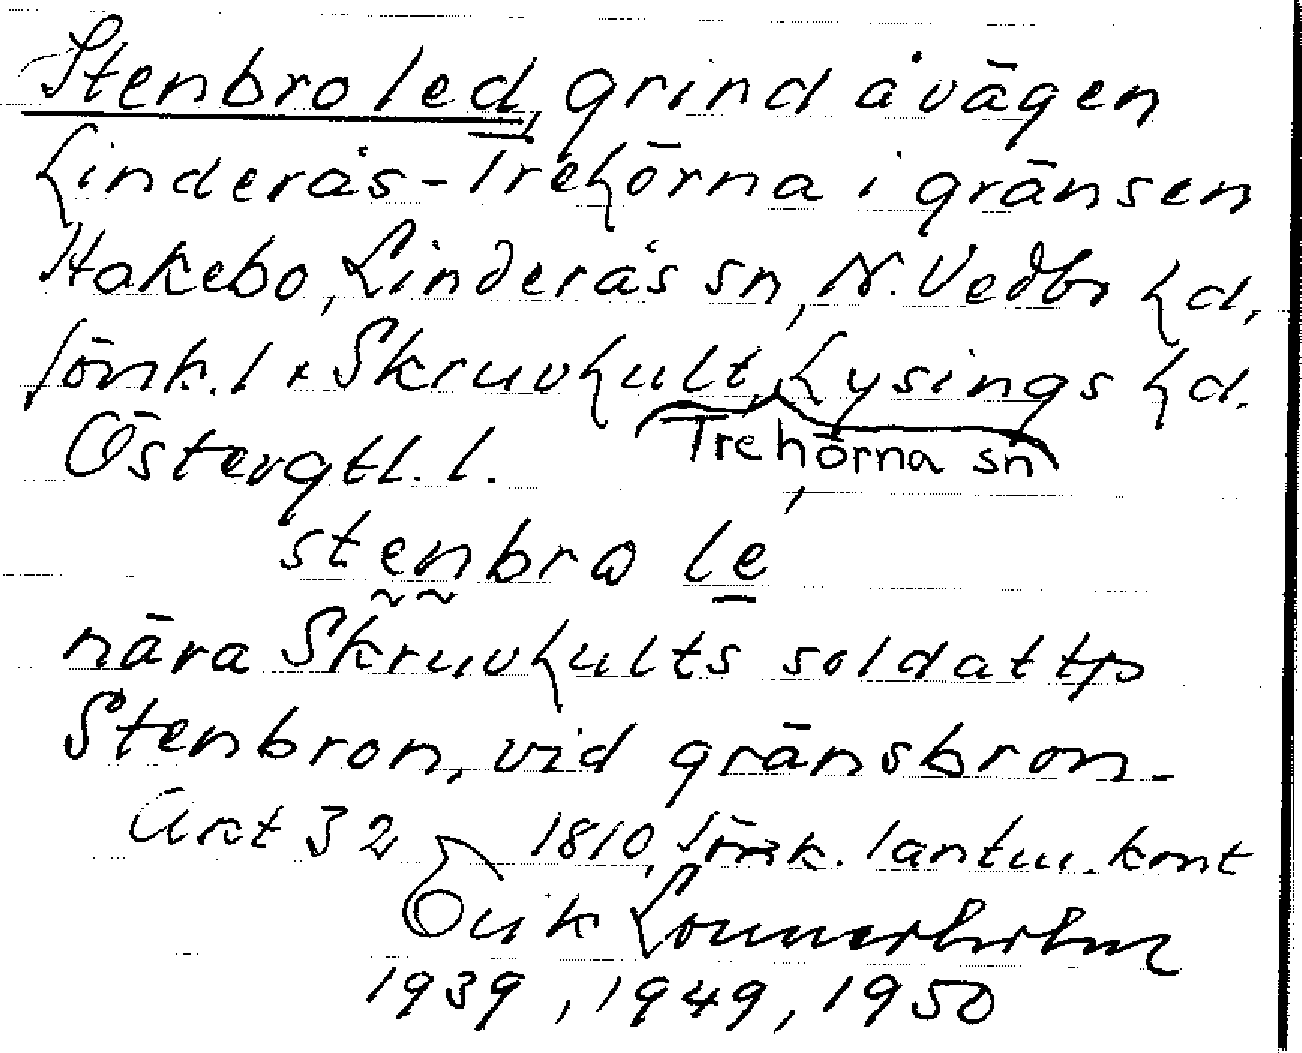 Stenbro led, grind å vägen
Linderås-Trehörna i gränsen
Hakebo, Linderås sn, N. Vedbo hd,
Jönk. l × Skruvhult, Lysings hd.
Trehörna sn
Östergtl. l.
stenbro le
nära Skruvhults soldattp
Stenbron, vid gränsbron.
Akt 32 1810, Jönk. lantm. kont
Erik Lönnerholm
1939, 1949, 1950